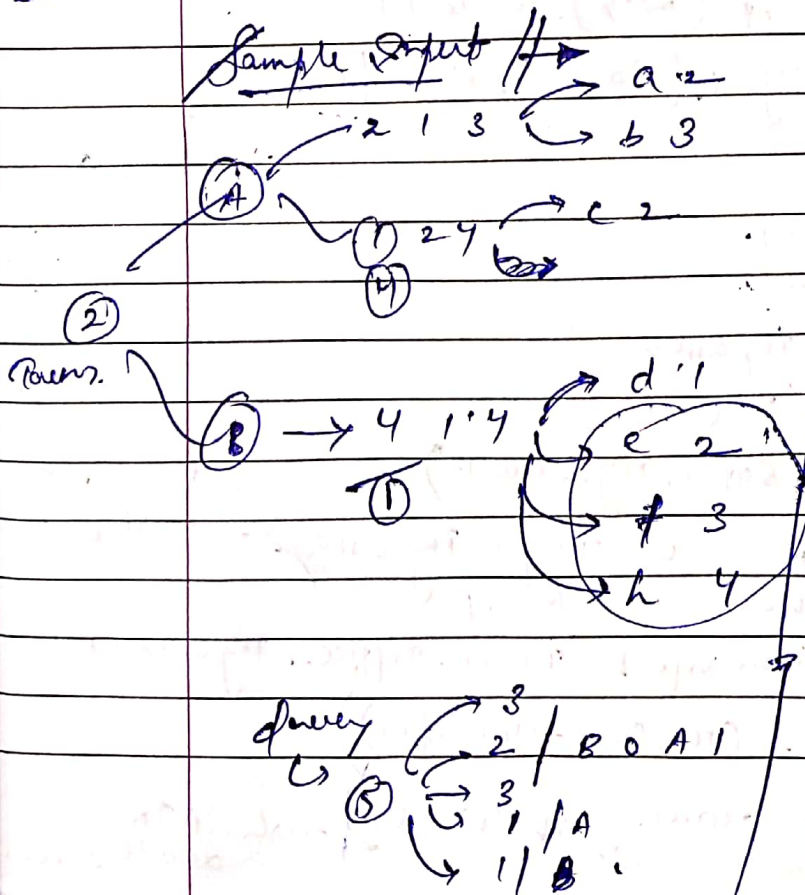 Sample Input
a 2
2 1 3
b 3
A
c 2
1 2 4
4
2
Towns.
d 1
B → 4 1 4
e 2
1
f 3
h 4
3
Query
2 / B 0 A 1
5
3
1 / A
1 / B